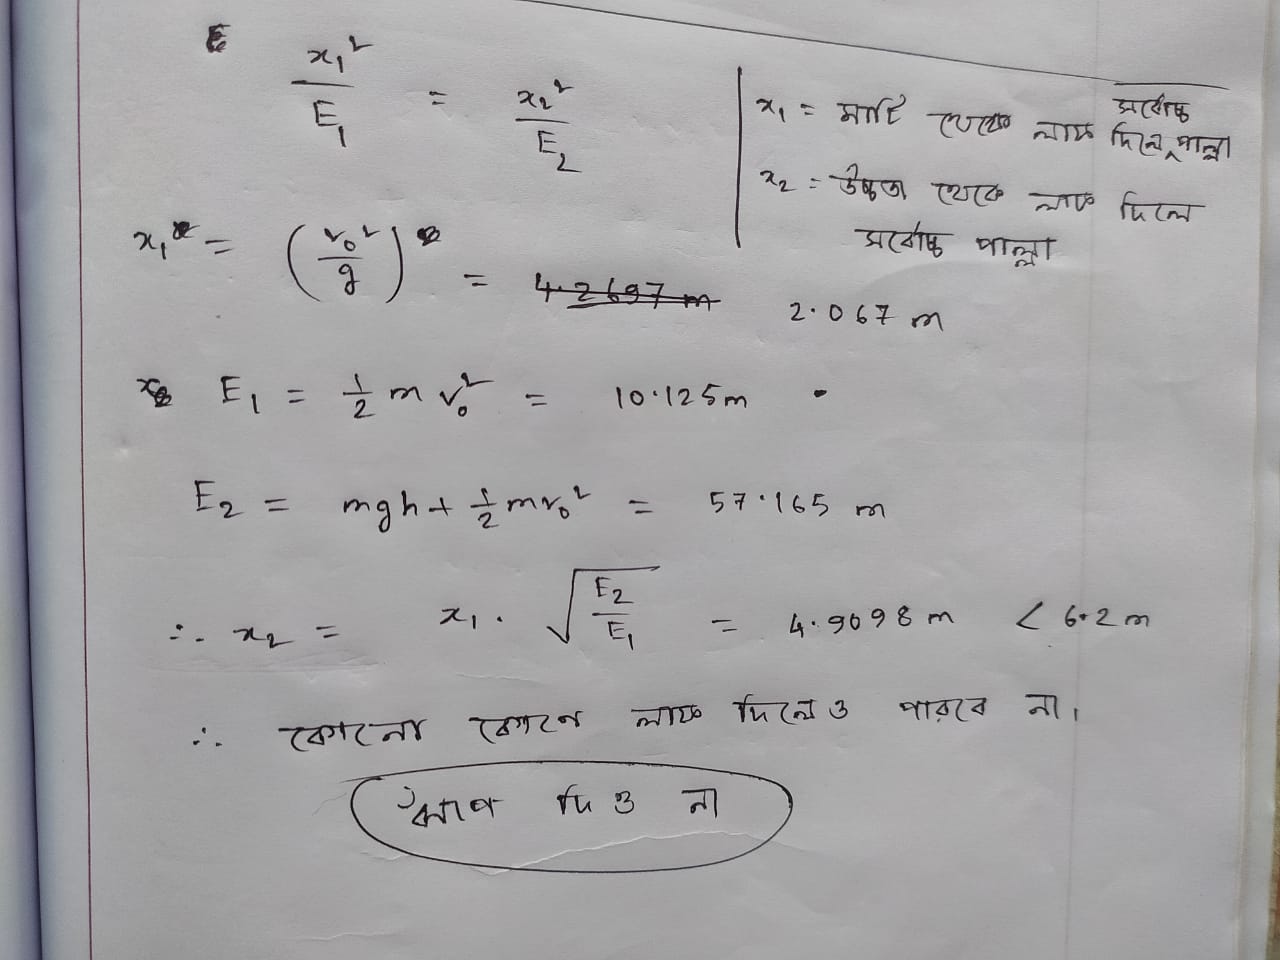 x₁²/E₁ = x₂²/E₂
x₁ = মাটি থেকে লাফ দিলে সর্বোচ্চ পাল্লা
x₂ = উচ্চতা থেকে লাফ দিলে
সর্বোচ্চ পাল্লা
x₁ = (v₀²/g) = 4.2697 m 2.067 m
E₁ = 1/2 m v₀² = 10.125m
E₂ = mgh + 1/2 mv₀² = 57.165 m
∴ x₂ = x₁ . √(E₂/E₁) = 4.9098 m < 6.2 m
∴ কোনো কোণে লাফ দিলেও পারবে না।
ঝাঁপ দিও না